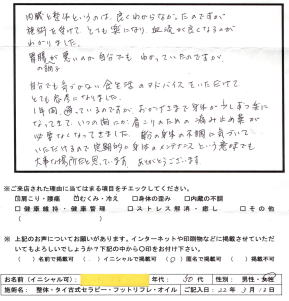 内臓と整体というのは、良くわからなかったのですが
施術を受けて、とても楽になり血液が良くなるのが
わかりました。
胃腸が悪いのか自分でも わかっていたのですが、
の調子
自分でも気づかない食生活のアドバイスをいただけて
とても参考になりました。
1年間 通っているのですが、おかげさまで身体が少しずつ楽に
なってきて、いつの間にか肩こりのための痛み止め薬が
必要なくなってきました。朝の身体の不調に気づいて
いただけるので定期的に身体のメンテナンスという意味でも
大事な場所だと思っています。ありがとうございます
※ご来店された理由に当てはまる項目をチェックしてください。
☑肩こり・腰痛 ☑むくみ・冷え □身体の歪み □内蔵の不調
□健康維持・健康管理 □ストレス解消・癒し □その他
( )
※上記のお声についてお願いがあります。インターネットや印刷物などに掲載させていただい
てもよろしいでしょうか？下記の中から○印をお付け下さい。
( )名前可で掲載可 ( )イニシャルで掲載可 (○)匿名で掲載可 ( )掲載不可
お名前（イニシャル可）： 年代： 50代 性別： 男性・女性
施術名： 整体・タイ古式セラピー・フットリフレ・オイル ご記入日： 22年3月12日